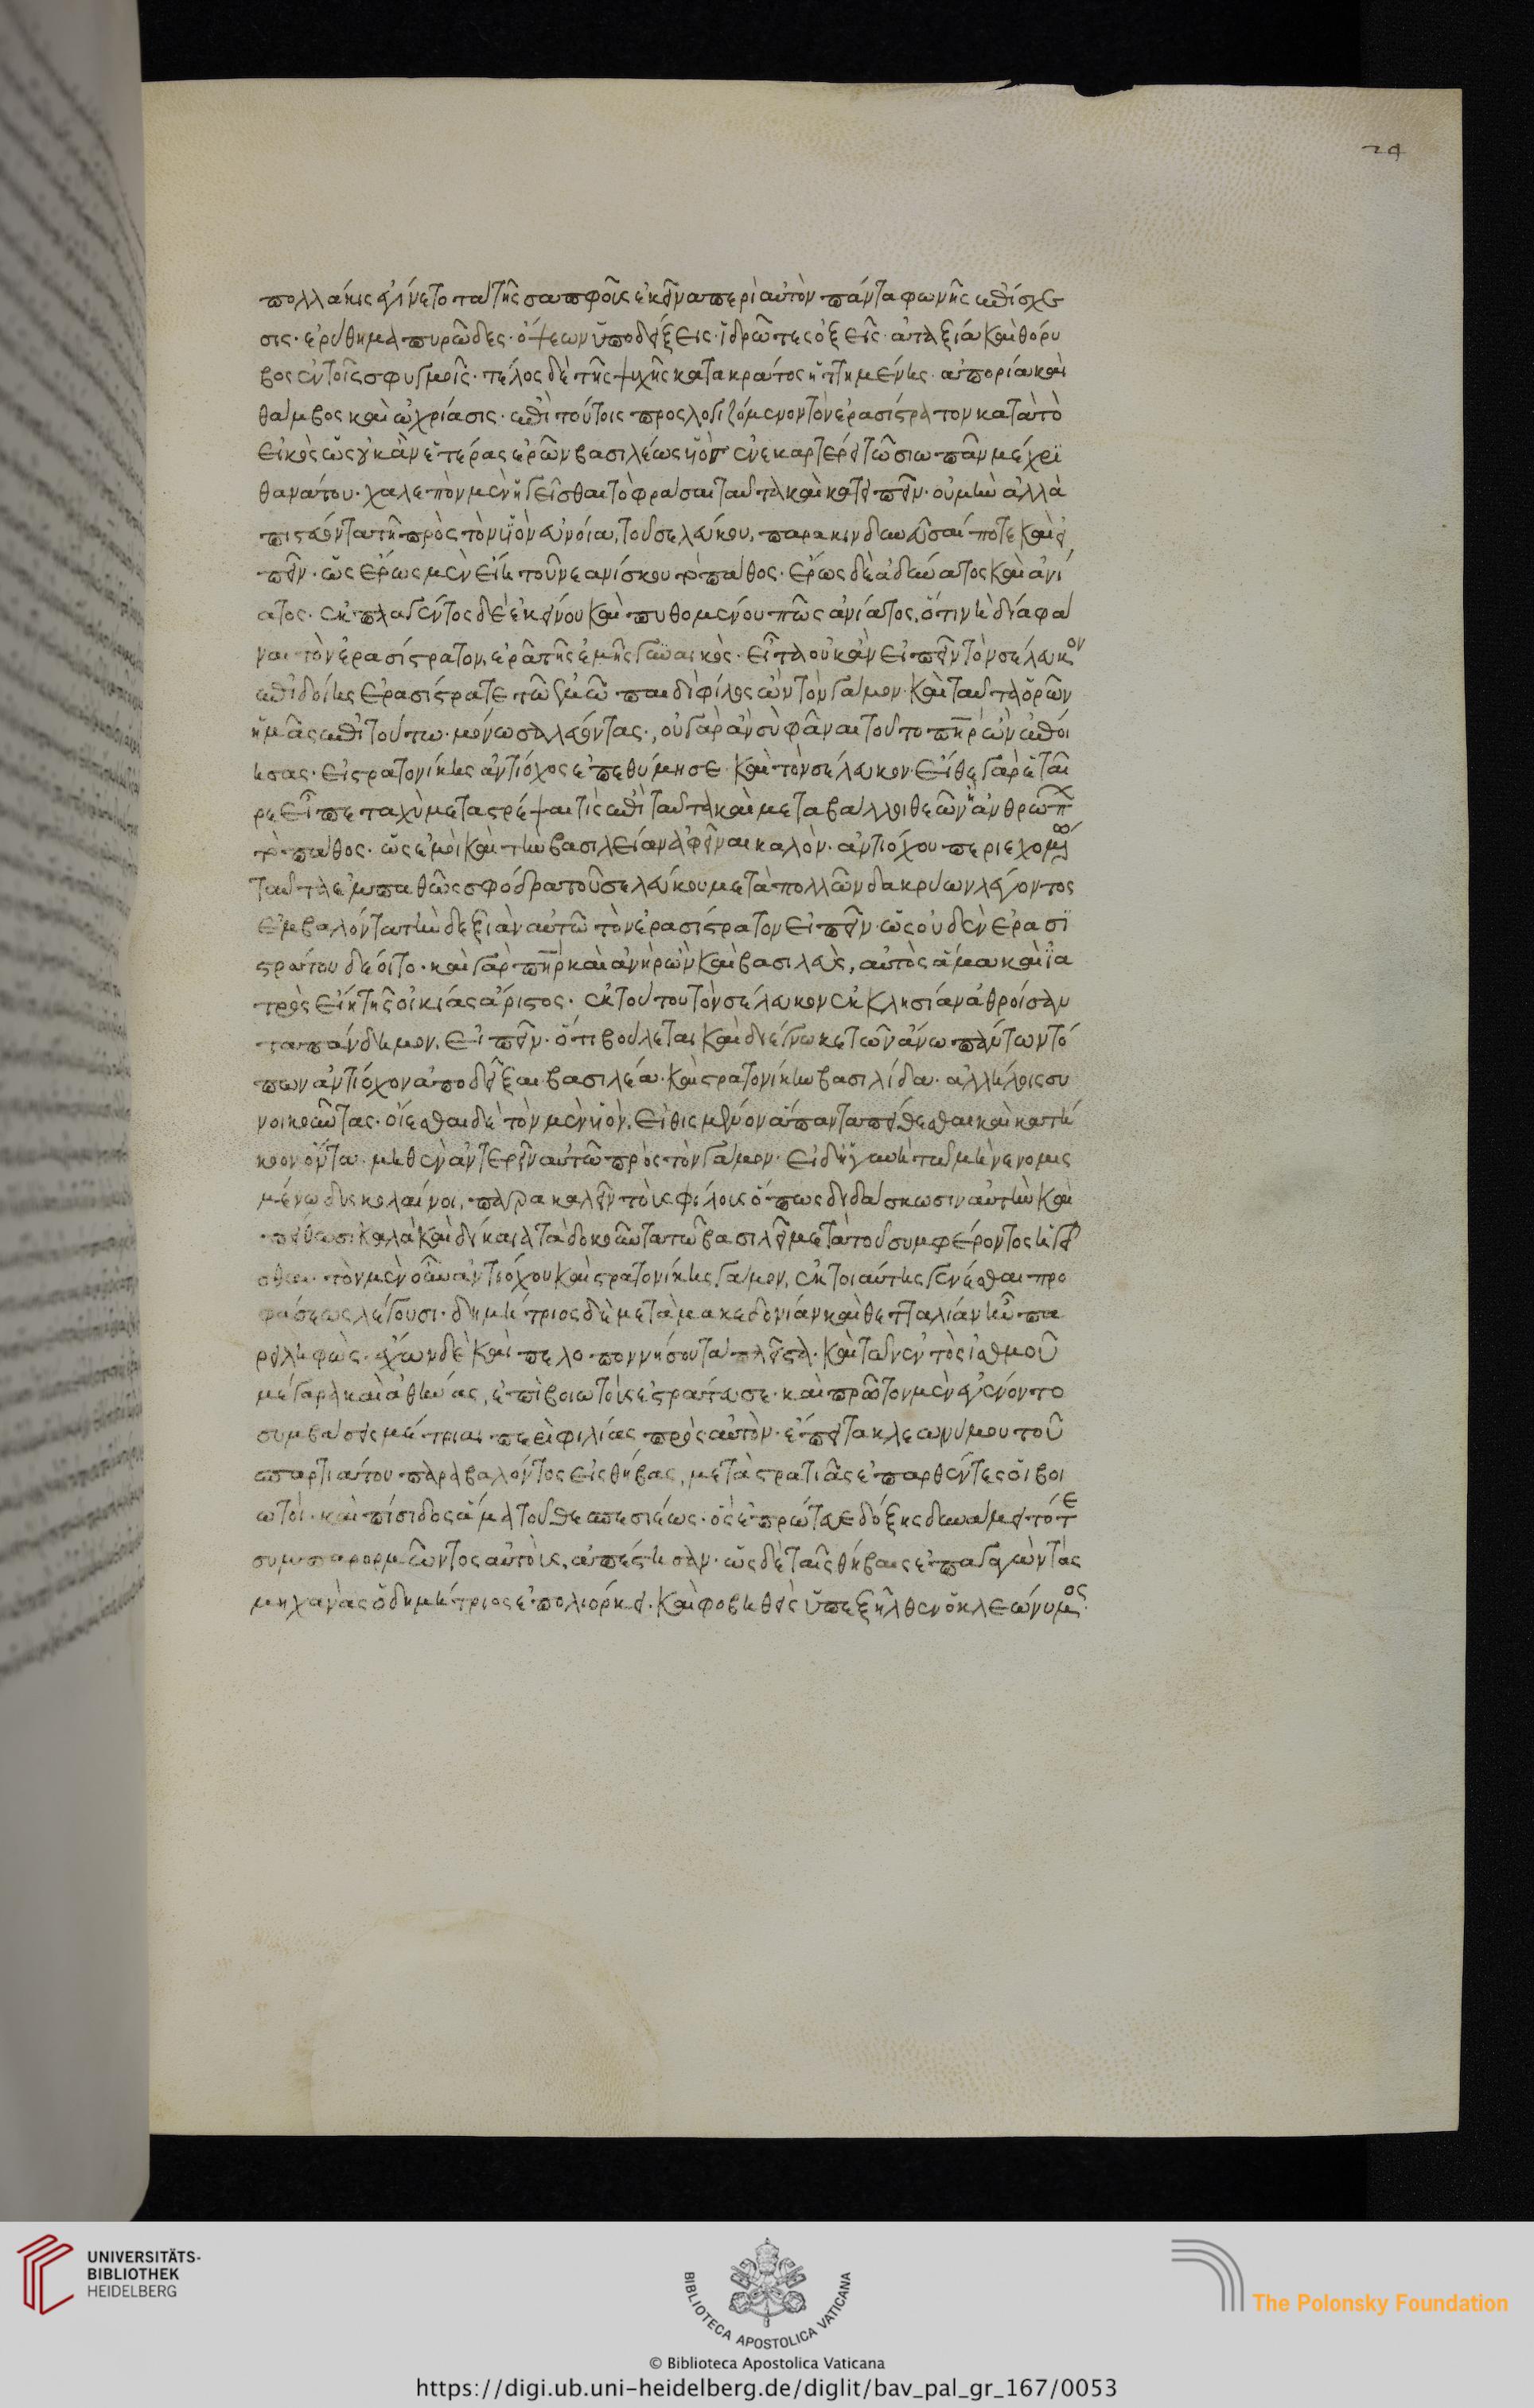 24
πολλάκις ἐγίνετο τὰ τῆς σαπφοῦς ἐκεῖνα περὶ αὐτὸν πάντα φωνῆς ἐπίσχε
σις· ἐρύθημα πυρῶδες· ὄψεων ὑποδείξεις· ἱδρῶτες ὀξεῖς· ἀταξία καὶ θόρυ
βος ἐν τοῖς σφυγμοῖς· τέλος δὲ τῆς ψυχῆς κατακράτος ἡττημένης· ἀπορία καὶ
θάμβος καὶ ὠχρίασις· ἐπὶ τούτοις προσλογιζόμενον τὸν ἐρασίστρατον κατὰ τὸ
εἰκὸς ὡς οὐκ ἂν ἑτέρας ἐρῶν βασιλέως υἱὸς ἐνεκαρτέρει τῶ σιωπᾶν μέχρι
θανάτου· χαλεπὸν μὲν ἡγεῖσθαι τὸ φράσαι ταῦτα καὶ κατειπεῖν· οὐ μὴν ἀλλὰ
πιστεύοντα τῆ πρὸς τὸν υἱὸν εὐνοία, τοῦ σελεύκου, παρακινδυνεῦσαί ποτε καὶ εἰ
πεῖν· ὡς ἔρως μὲν εἴη τοῦ νεανίσκου τὸ πάθος· ἔρως δὲ ἀδύνατος καὶ ἀνί
ατος· ἐκπλαγέντος δὲ ἐκείνου καὶ πυθομένου πῶς ἀνίατος, ὅτι νὴ δία φά
ναι τὸν ἐρασίστρατον, ἐρᾶ τῆς ἐμῆς γυναικὸς· εἶτα οὐκ ἂν εἰπεῖν τὸν σέλευκον
ἐπιδοίης ἐρασίστρατε τῶ ἐμῶ παιδὶ φίλος ὢν τὸν γάμον· καὶ ταῦτα ὁρῶν
ἡμᾶς ἐπὶ τούτω μόνω σαλεύοντας· οὐ γὰρ ἂν σὺ φάναι τοῦτο πατὴρ ὢν ἐποί
ησας· εἰ στρατονίκης ἀντίοχος ἐπεθύμησε· καὶ τὸν σέλευκον· εἴθε γὰρ ἑταῖ
ρε εἶπε ταχὺ μεταστρέψαι τὶς ἐπὶ ταῦτα καὶ μεταβάλλοι θεῶν ἢ ἀνθρώπων
τὸ πάθος· ὡς ἐμοὶ καὶ τὴν βασιλείαν ἀφεῖναι καλὸν· ἀντιόχου περιεχομένω
ταῦτα ἐμπαθῶς σφόδρα τοῦ σελεύκου μετὰ πολλῶν δακρύων λέγοντος
ἐμβαλόντα τὴν δεξιὰν αὐτῶ τὸν ἐρασίστρατον εἰπεῖν· ὡς οὐδὲν ἐρασι
στράτου δέοιτο· καὶ γὰρ πατὴρ καὶ ἀνὴρ ὢν καὶ βασιλεὺς, αὐτὸς ἅμα καὶ ἰα
τρὸς εἴη τῆς οἰκίας ἄριστος· ἐκ τούτου τὸν σέλευκον ἐκκλησίαν ἀθροίσαν
τα πάνδημον, εἰπεῖν· ὅτι βούλεται καὶ διέγνωκε τῶν ἄνω πάντων τό
πων ἀντίοχον ἀποδεῖξαι βασιλέα· καὶ στρατονίκην βασιλίδα· ἀλλήλοις συ
νοικοῦντας· οἴεσθαι δὲ τὸν μὲν υἱὸν, εἰθισμένον ἅπαντα πείθεσθαι καὶ κατή
κοον ὄντα· μηθὲν ἀντερεῖν αὐτῶ πρὸς τὸν γάμον· εἰ δὴ γυνὴ τῶ μὴ νενομισ
μένω δυσκολαίνοι, παρακαλεῖν τοὺς φίλους ὅπως διδάσκωσιν αὐτὴν καὶ
πείθωσι καλὰ καὶ δίκαια τὰ δοκοῦντα τῶ βασιλεῖ μετὰ τοῦ συμφέροντος ἡγεῖ
σθαι· τὸν μὲν οὖν ἀντιόχου καὶ στρατονίκης γάμον, ἐκ τοιαύτης γενέσθαι προ
φάσεως λέγουσι· δημήτριος δὲ μετὰ μακεδονίαν καὶ θετταλίαν ἦν πα
ρειληφὼς· ἔχων δὲ καὶ πελοποννήσου τὰ πλεῖστα· καὶ τῶν ἐντὸς ἰσθμοῦ
μέγαρα καὶ ἀθήνας, ἐπὶ βοιωτοὺς ἐστράτευσε· καὶ πρῶτον μὲν ἐγένοντο
συμβάσεις μέτριαι περὶ φιλίας πρὸς αὐτὸν· ἔπειτα κλεωνύμου τοῦ
σπαρτιάτου παραβαλόντος εἰς θήβας, μετὰ στρατιᾶς ἐπαρθέντες οἱ βοι
ωτοὶ· καὶ πίσιδος ἅμα τοῦ θεσπιέως· ὃς ἐπρώτευε δόξης δυνάμει τότε
συμπαρορμῶντος αὐτοὺς, ἀπέστησαν· ὡς δὲ ταῖς θήβαις ἐπαγαγὼν τὰς
μηχανὰς ὁ δημήτριος ἐπολιόρκει· καὶ φοβηθεὶς ὑπεξῆλθεν ὁ κλεώνυμος·
UNIVERSITÄTS-
BIBLIOTHEK
HEIDELBERG
BIBLIOTECA APOSTOLICA VATICANA
The Polonsky Foundation
© Biblioteca Apostolica Vaticana
https://digi.ub.uni-heidelberg.de/diglit/bav_pal_gr_167/0053